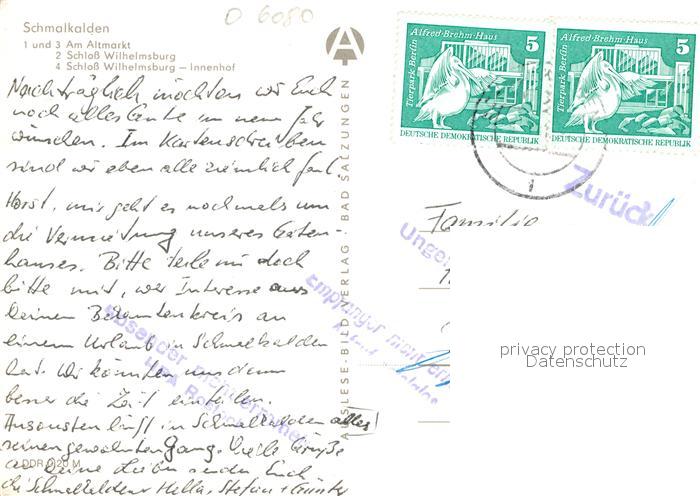 O 6080
Schmalkalden
1 und 3 Am Altmarkt
2 Schloß Wilhelmsburg
4 Schloß Wilhelmsburg – Innenhof
Nachträglich möchten wir Euch
noch alles Gute im neuen Jahr
wünschen. Im Kartenschreiben
sind wir eben alle ziemlich faul.
Horst, mir geht es nochmals um
die Vermietung unseres Garten-
hauses. Bitte teile mir doch
bitte mit, wer Interesse aus
Deinem Bekanntenkreis an
einem Urlaub in Schmalkalden
hat. Wir könnten uns dann
besser die Zeit einteilen.
Ansonsten läuft in Schmalkalden alles
seinen gewohnten Gang. Viele Grüße
an Deine Lieben senden Euch
die Schmalkaldener Hella, Stefan + Günter
DDR 0,20 M
AUSLESE-BILD-VERLAG · BAD SALZUNGEN
Alfred-Brehm-Haus 5
Tierpark Berlin
DEUTSCHE DEMOKRATISCHE REPUBLIK
Alfred-Brehm-Haus 5
Tierpark Berlin
DEUTSCHE DEMOKRATISCHE REPUBLIK
Zurück
Familie
Empfänger
Absender
privacy protection
Datenschutz